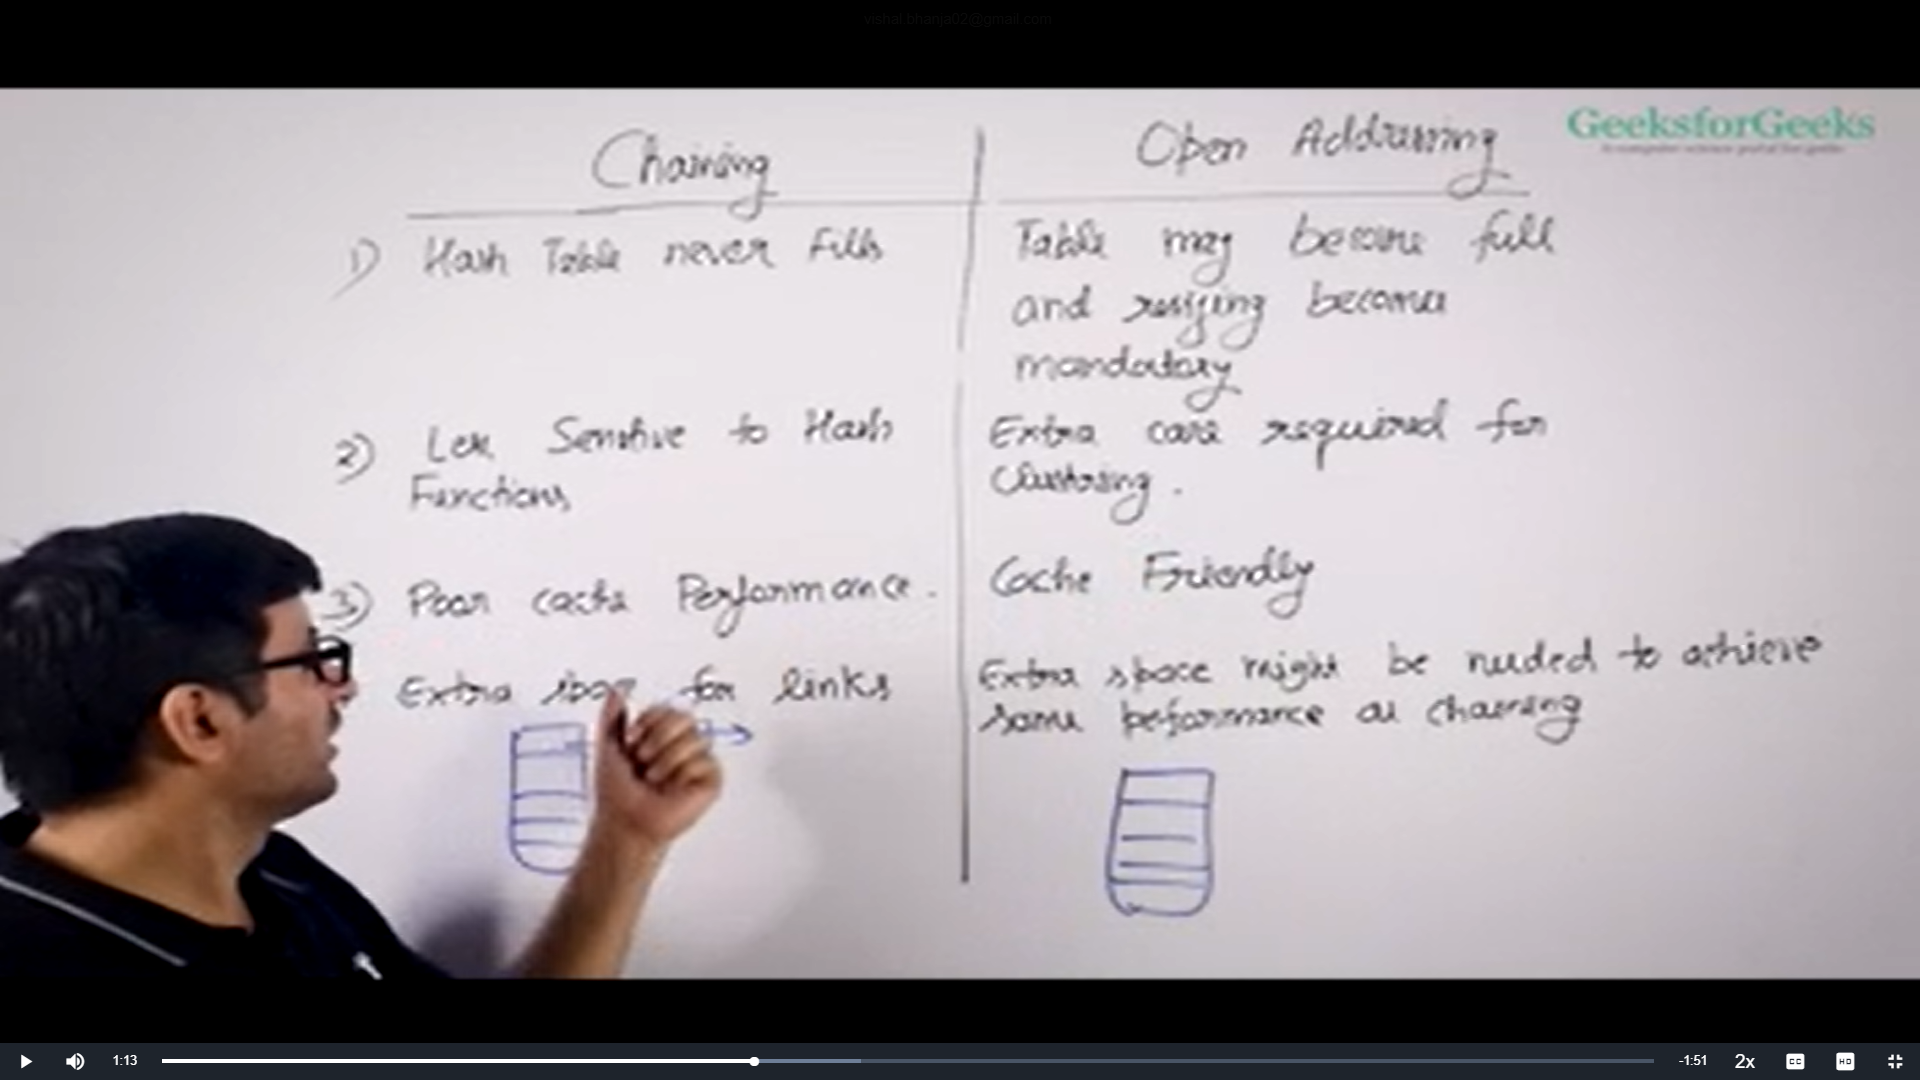 vishal.bhanja02@gmail.com
GeeksforGeeks
A computer science portal for geeks
Chaining
Open Addressing
1) Hash Table never Fills
Table may become full
and resizing becomes
mandatory
2) Less Sensitive to Hash
Functions
Extra care required for
Clustering.
3) Poor cache Performance.
Cache Friendly
Extra space for links
Extra space might be needed to achieve
same performance as chaining
1:13
-1:51
2x
CC
HD